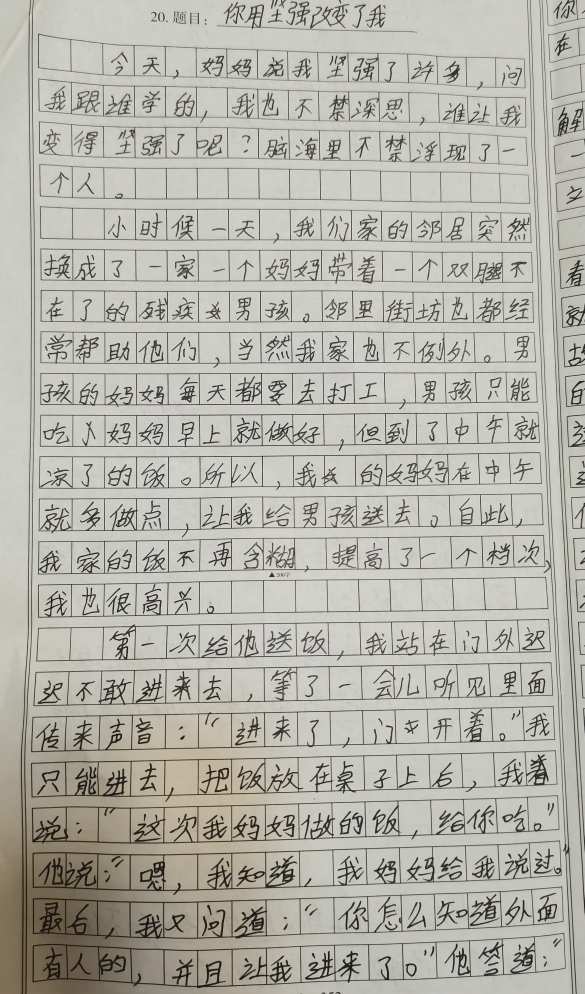 20. 题目：你用坚强改变了我
今天，妈妈说我坚强了许多，问
我跟谁学的，我也不禁深思，谁让我
变得坚强了呢？脑海里不禁浮现了一
个人。
小时候一天，我们家的邻居突然
换成了一家一个妈妈带着一个双腿不
在了的残疾男孩。邻里街坊也都经
常帮助他们，当然我家也不例外。男
孩的妈妈每天都要去打工，男孩只能
吃妈妈早上就做好，但到了中午就
凉了的饭。所以，我的妈妈在中午
就多做点，让我给男孩送去。自此，
我家的饭不再含糊，提高了一个档次，
▲200字
我也很高兴。
第一次给他送饭，我站在门外迟
迟不敢进来去，等了一会儿听见里面
传来声音：“进来了，门开着。”我
只能进去，把饭放在桌子上后，我着
说：“这次我妈妈做的饭，给你吃。”
他说：“嗯，我知道，我妈妈给我说过。”
最后，我又问道：“你怎么知道外面
有人的，并且让我进来了。”他答道：“
你
在
解
一
文
看
的